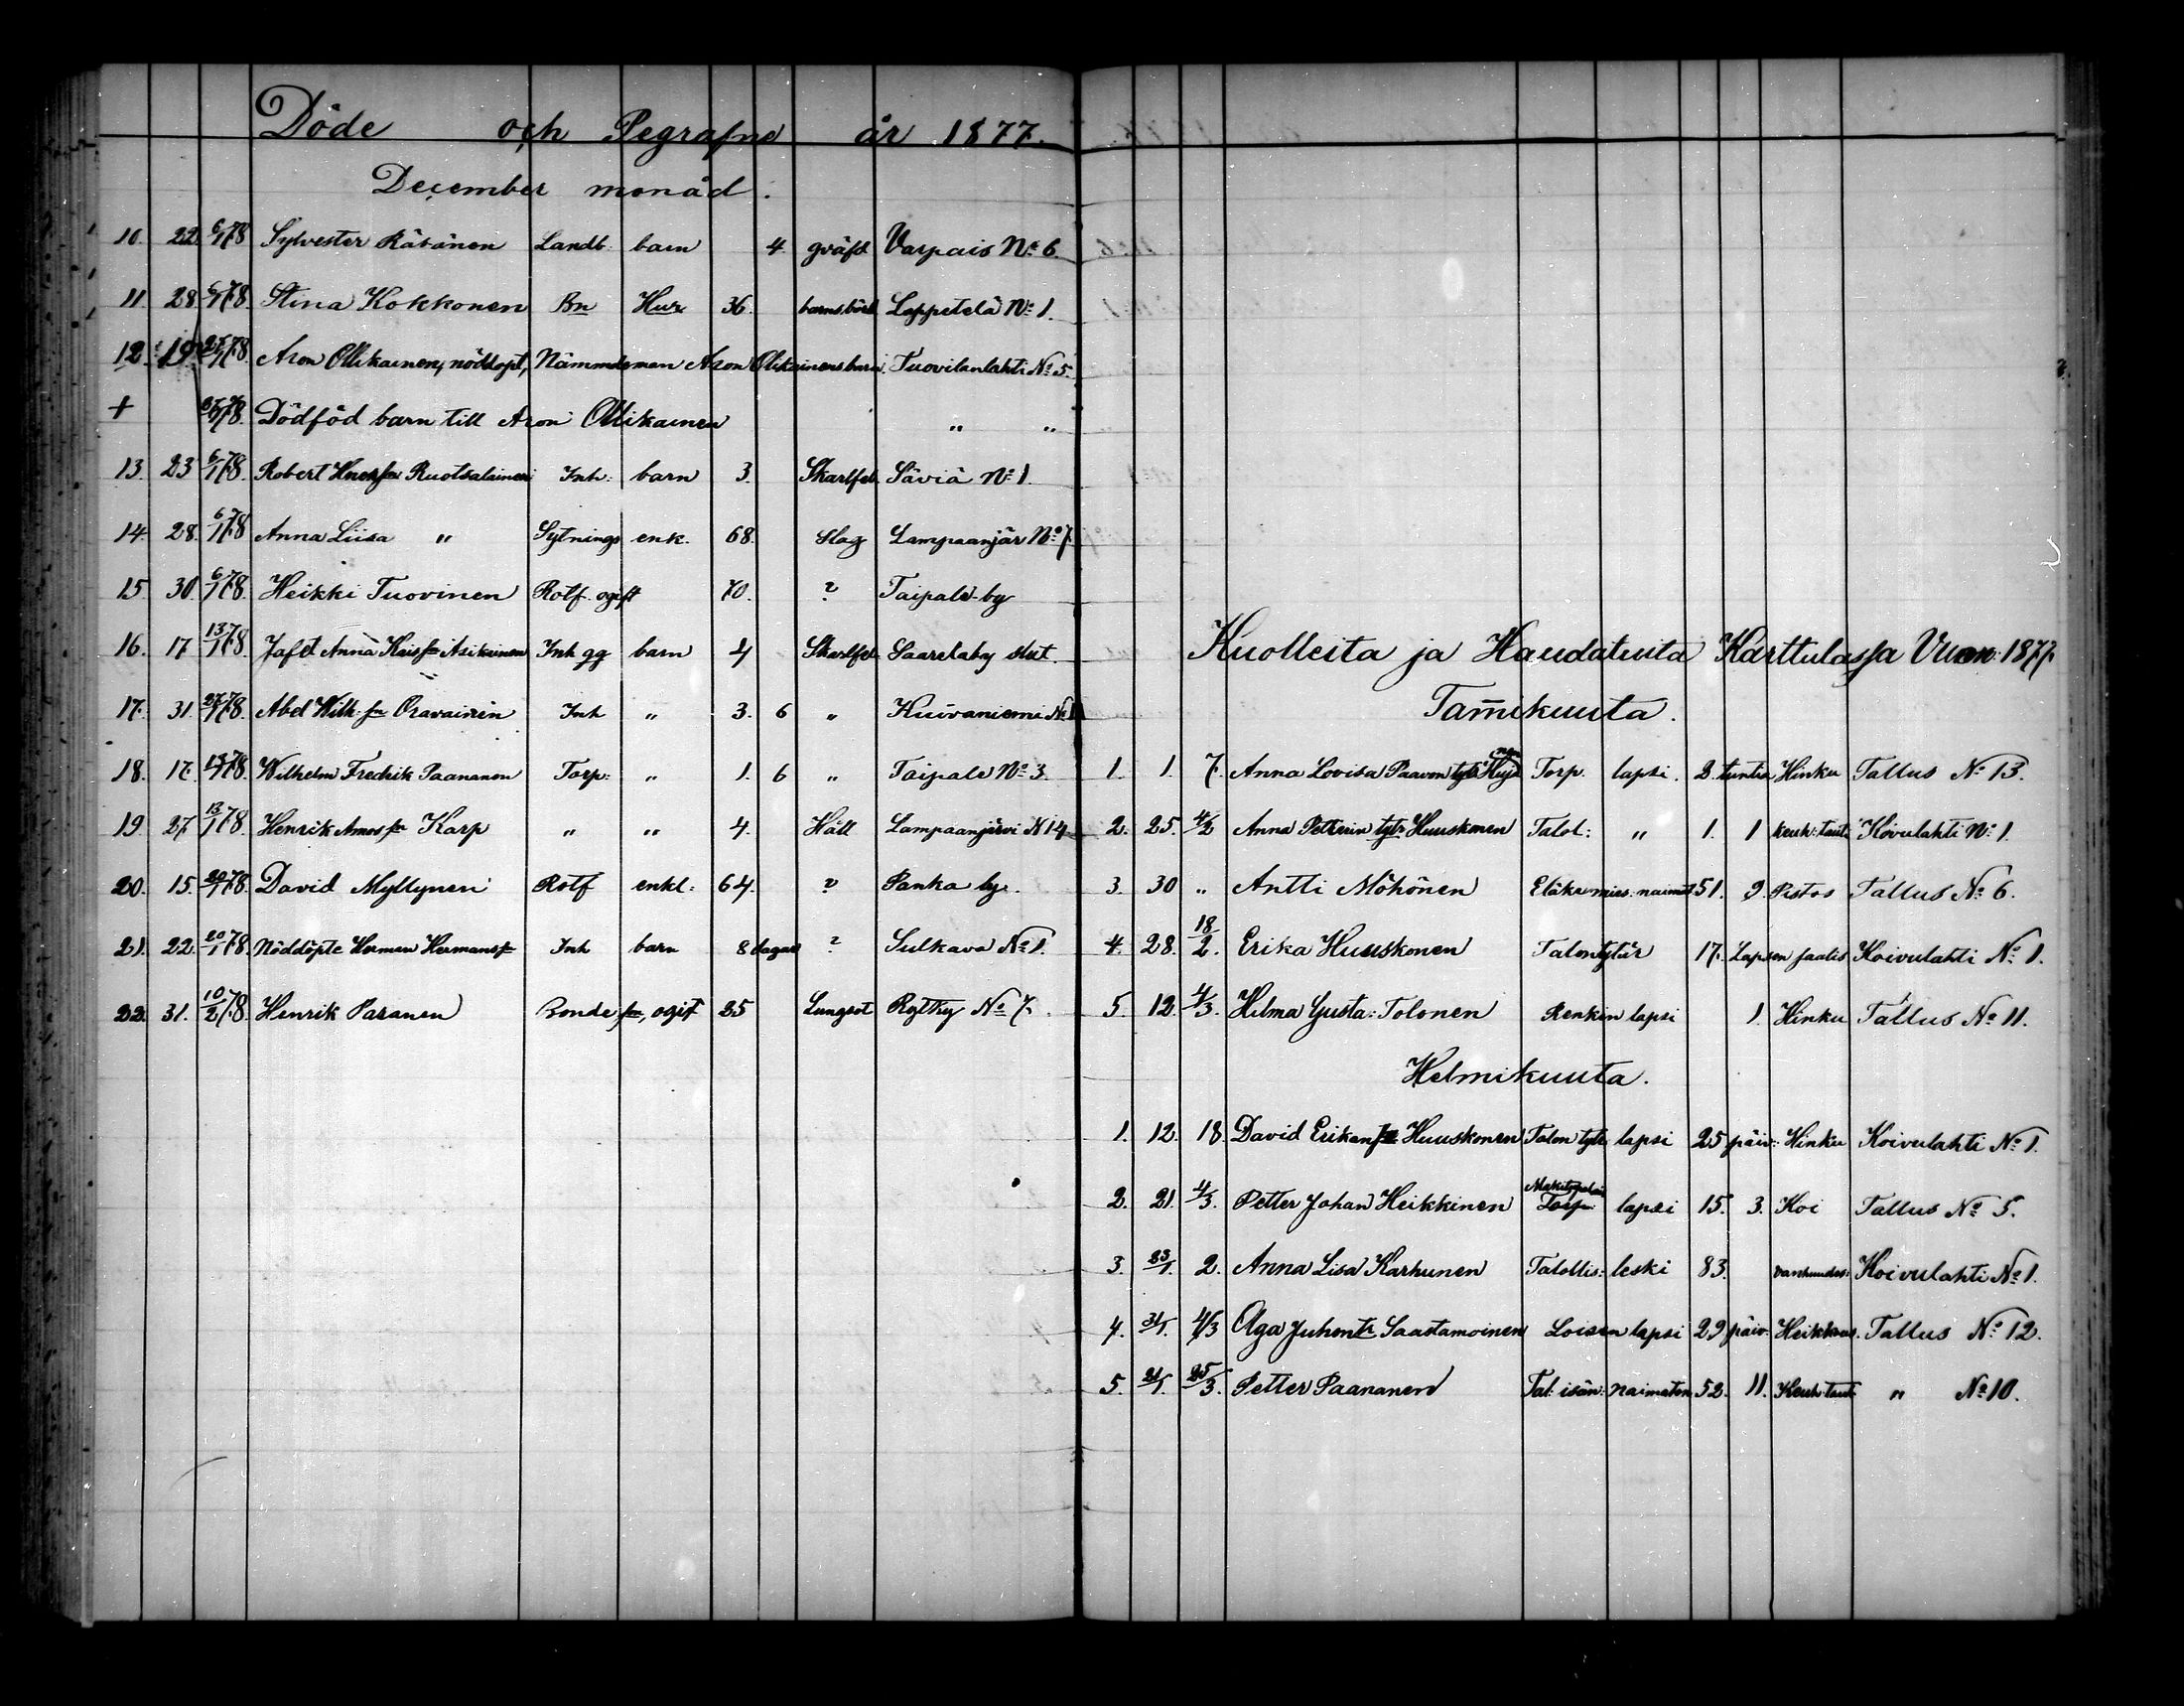 Döde och Begrafne år 1877.
December monad.
10. 22. 6/1 78 Sylvester Räsänen Landb. barn 4. qväfd Varpais No 6.
11. 28. 6/1 78. Stina Kokkonen Bn Hu 36. barnsbörd Lappetelä No 1.
12. 19. 78. Aron Ollikainen, nöddöpt, Nämndeman Aron Ollikainens barn. Tuovilanlahti No 5.
+ 78. Dödföd barn till Aron Ollikainen " "
13. 23 6/1 78. Robert Ruotsalainen Inh. barn 3. Skarlfeb. Säviä No 1.
14. 28. 6/1 78 Anna Liisa " Sytnings enk. 68. Slag Lampaanjär No 7.
15. 30. 6/1 78. Heikki Tuovinen Rotf. ogift 70. ? Taipale by
16. 17 13/1 78. Jafet Anna Asikainen Inh gg barn 4 Skarlfeb Saarelaby slut.
17. 31. 27/1 78. Abel Wilh. sn Oravainen Inh " 3. 6 " Kuivaniemi No 1
18. 17. 13/1 78. Wilhelm Fredrik Paananen Torp: " 1. 6 " Taipale No 3.
19. 27. 13/1 78. Henrik Amos sn Karp " " 4. Håll Lampaanjärvi N 14
20. 15. 20/1 78. David Myllynen Rotf enkl: 64. ? Panka by.
21. 22. 20/1 78. Nöddöpte Herman Hermanss Inh barn 8 dagar ? Sulkava No 1.
22. 31. 10/2 78. Henrik Pasanen Bonde sn, ogift 25 Lungsot Rytky No 7.
Kuolleita ja Haudatuita Karttulassa Vuon: 1877.
Tammikuuta.
1. 1. 7. Anna Lovisa Paavon tytr Torp. lapsi. 2. tuntia Hinku Tallus No 13.
2. 25. 4/2 Anna Petterin tytr Huuskonen Talol: " 1. 1 keuh: tauti Koivulahti No 1.
3. 30 " Antti Möhönen Eläkemies: naimat 51. 9. Pistos Tallus No 6.
4. 28. 18/2. Erika Huuskonen Talontytär 17. Lapsen saatis Koivulahti No 1.
5. 12. 4/3. Hilma Gusta: Tolonen Renkin lapsi 1. Hinku Tallus No 11.
Helmikuuta.
1. 12. 18. David Erikan Huuskonen Talon tytr lapsi 25 päiv: Hinku Koivulahti No 1.
2. 21. 4/3. Petter Johan Heikkinen Torp. lapsi 15. 3. Koi Tallus No 5.
3. 23/1. 2. Anna Lisa Karhunen Talollis: leski 83. vanhuudes: Koivulahti No 1.
4. 31/1. 4/3 Aga Juhon tr Saastamoinen Loisen lapsi 29 päiv: Heikkous. Tallus No 12.
5. 21/1. 25/3. Petter Paananen Tal: isän: naimaton 52. 11. Keuh: taut. " No 10.